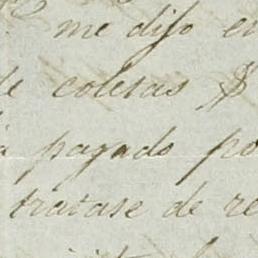 me dijo en
de coletas $
pagado po
tratase de re